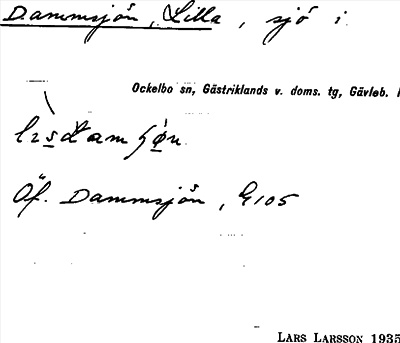 Dammsjön, Lilla, sjö i
Ockelbo sn, Gästriklands v. doms. tg, Gävleb.
Öf. Dammsjön, G105
LARS LARSSON 1935